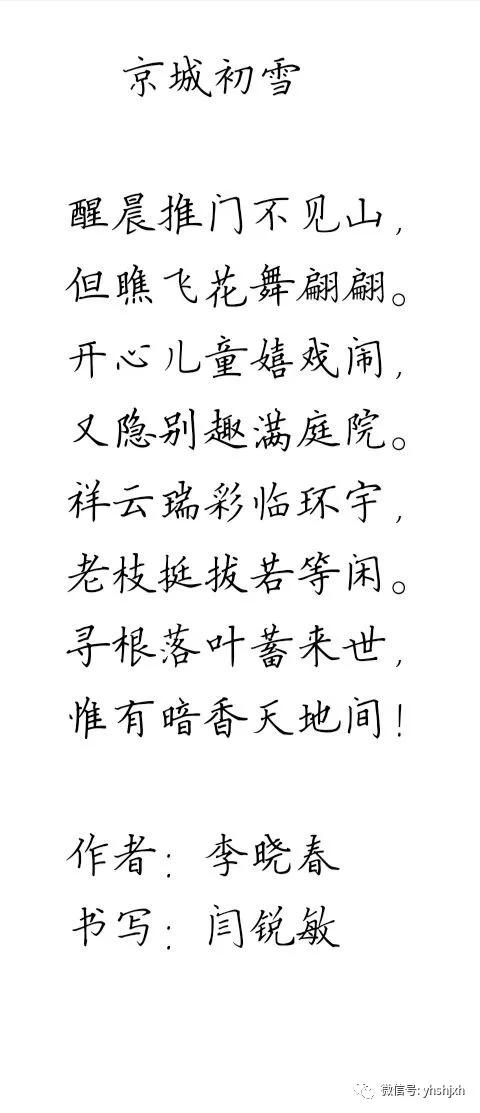 京城初雪
醒晨推门不见山，
但瞧飞花舞翩翩。
开心儿童嬉戏闹，
又隐别趣满庭院。
祥云瑞彩临环宇，
老枝挺拔若等闲。
寻根落叶蓄来世，
惟有暗香天地间！
作者：李晓春
书写：闫锐敏
微信号: yhshjxh